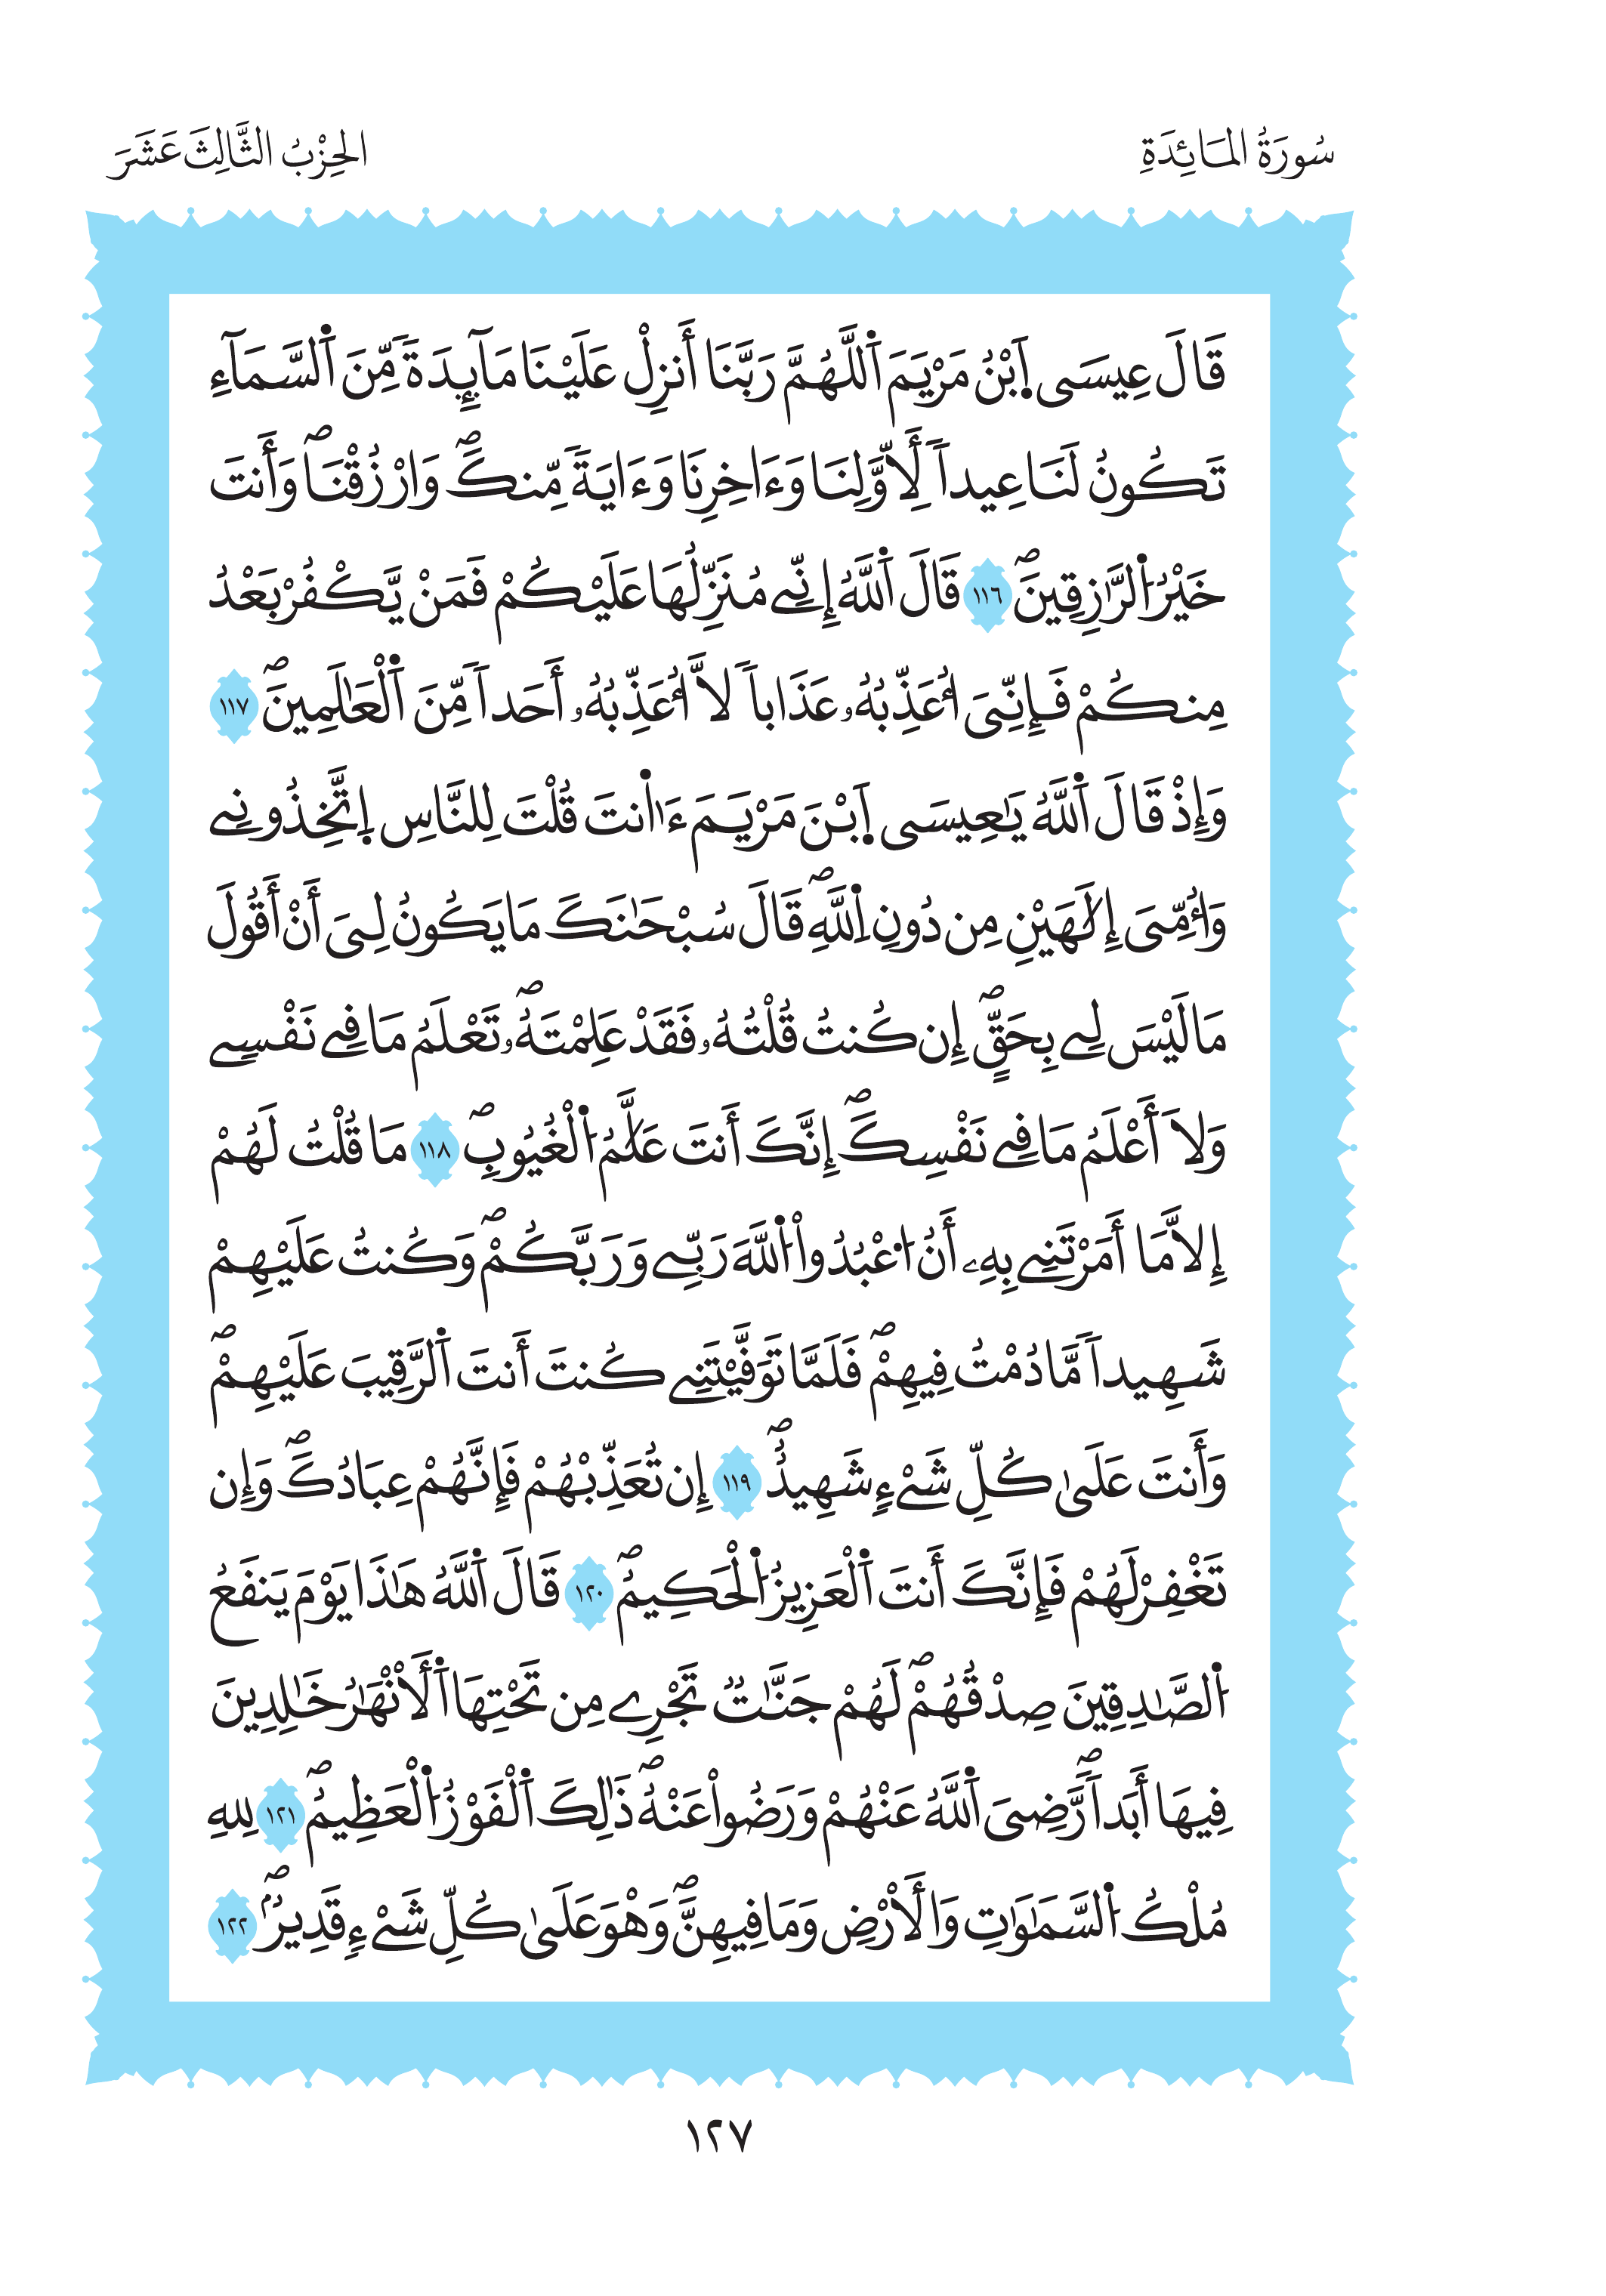 سُورَةُ المَائِدَةِ
الحِزْبُ الثَّالِثَ عَشَرَ
قَالَ عِيسَى اَ۪بْنُ مَرْيَمَ اَ۬للَّهُمَّ رَبَّنَا أَنزِلْ عَلَيْنَا مَآئِدَةً مِّنَ اَ۬لسَّمَآءِ
تَكُونُ لَنَا عِيداً لِّأَوَّلِنَا وَءَاخِرِنَا وَءَايَةً مِّنكَۖ وَارْزُقْنَاۖ وَأَنتَ
خَيْرُ اُ۬لرَّٰزِقِينَۖ ١١٦ قَالَ اَ۬للَّهُ إِنِّے مُنَزِّلُهَا عَلَيْكُمْ فَمَنْ يَّكْفُرْ بَعْدُ
مِنكُمْ فَإِنِّىَ أُعَذِّبُهُۥ عَذَاباً لَّا أُعَذِّبُهُۥ أَحَداً مِّنَ اَ۬لْعَٰلَمِينَۖ ١١٧
وَإِذْ قَالَ اَ۬للَّهُ يَٰعِيسَى اَ۪بْنَ مَرْيَمَ ءَا۬نتَ قُلْتَ لِلنَّاسِ اِ۪تَّخِذُونِے
وَأُمِّىَ إِلَٰهَيْنِ مِن دُونِ اِ۬للَّهِۖ قَالَ سُبْحَٰنَكَ مَا يَكُونُ لِىَ أَنْ أَقُولَ
مَا لَيْسَ لِے بِحَقٍّۖ إِن كُنتُ قُلْتُهُۥ فَقَدْ عَلِمْتَهُۥۖ تَعْلَمُ مَا فِے نَفْسِے
وَلَا أَعْلَمُ مَا فِے نَفْسِكَۖ إِنَّكَ أَنتَ عَلَّٰمُ اُ۬لْغُيُوبِۖ ١١٨ مَا قُلْتُ لَهُمْ
إِلَّا مَا أَمَرْتَنِے بِهِۦ أَنُ اُ۟عْبُدُواْ اُ۬للَّهَ رَبِّے وَرَبَّكُمْۖ وَكُنتُ عَلَيْهِمْ
شَهِيداً مَّا دُمْتُ فِيهِمْۖ فَلَمَّا تَوَفَّيْتَنِے كُنتَ أَنتَ اَ۬لرَّقِيبَ عَلَيْهِمْۖ
وَأَنتَ عَلَىٰ كُلِّ شَےْءٍ شَهِيدٌۖ ١١٩ إِن تُعَذِّبْهُمْ فَإِنَّهُمْ عِبَادُكَۖ وَإِن
تَغْفِرْ لَهُمْ فَإِنَّكَ أَنتَ اَ۬لْعَزِيزُ اُ۬لْحَكِيمُۖ ١٢٠ قَالَ اَ۬للَّهُ هَٰذَا يَوْمَ يَنفَعُ
اُ۬لصَّٰدِقِينَ صِدْقُهُمْۖ لَهُمْ جَنَّٰتٌ تَجْرِے مِن تَحْتِهَا اَ۬لْأَنْهَٰرُ خَٰلِدِينَ
فِيهَا أَبَداًۖ رَّضِىَ اَ۬للَّهُ عَنْهُمْ وَرَضُواْ عَنْهُۖ ذَٰلِكَ اَ۬لْفَوْزُ اُ۬لْعَظِيمُۖ ١٢١ لِلهِ
مُلْكُ اُ۬لسَّمَٰوَٰتِ وَالْأَرْضِ وَمَا فِيهِنَّۖ وَهْوَ عَلَىٰ كُلِّ شَےْءٍ قَدِيرٌۖ ١٢٢
١٢٧